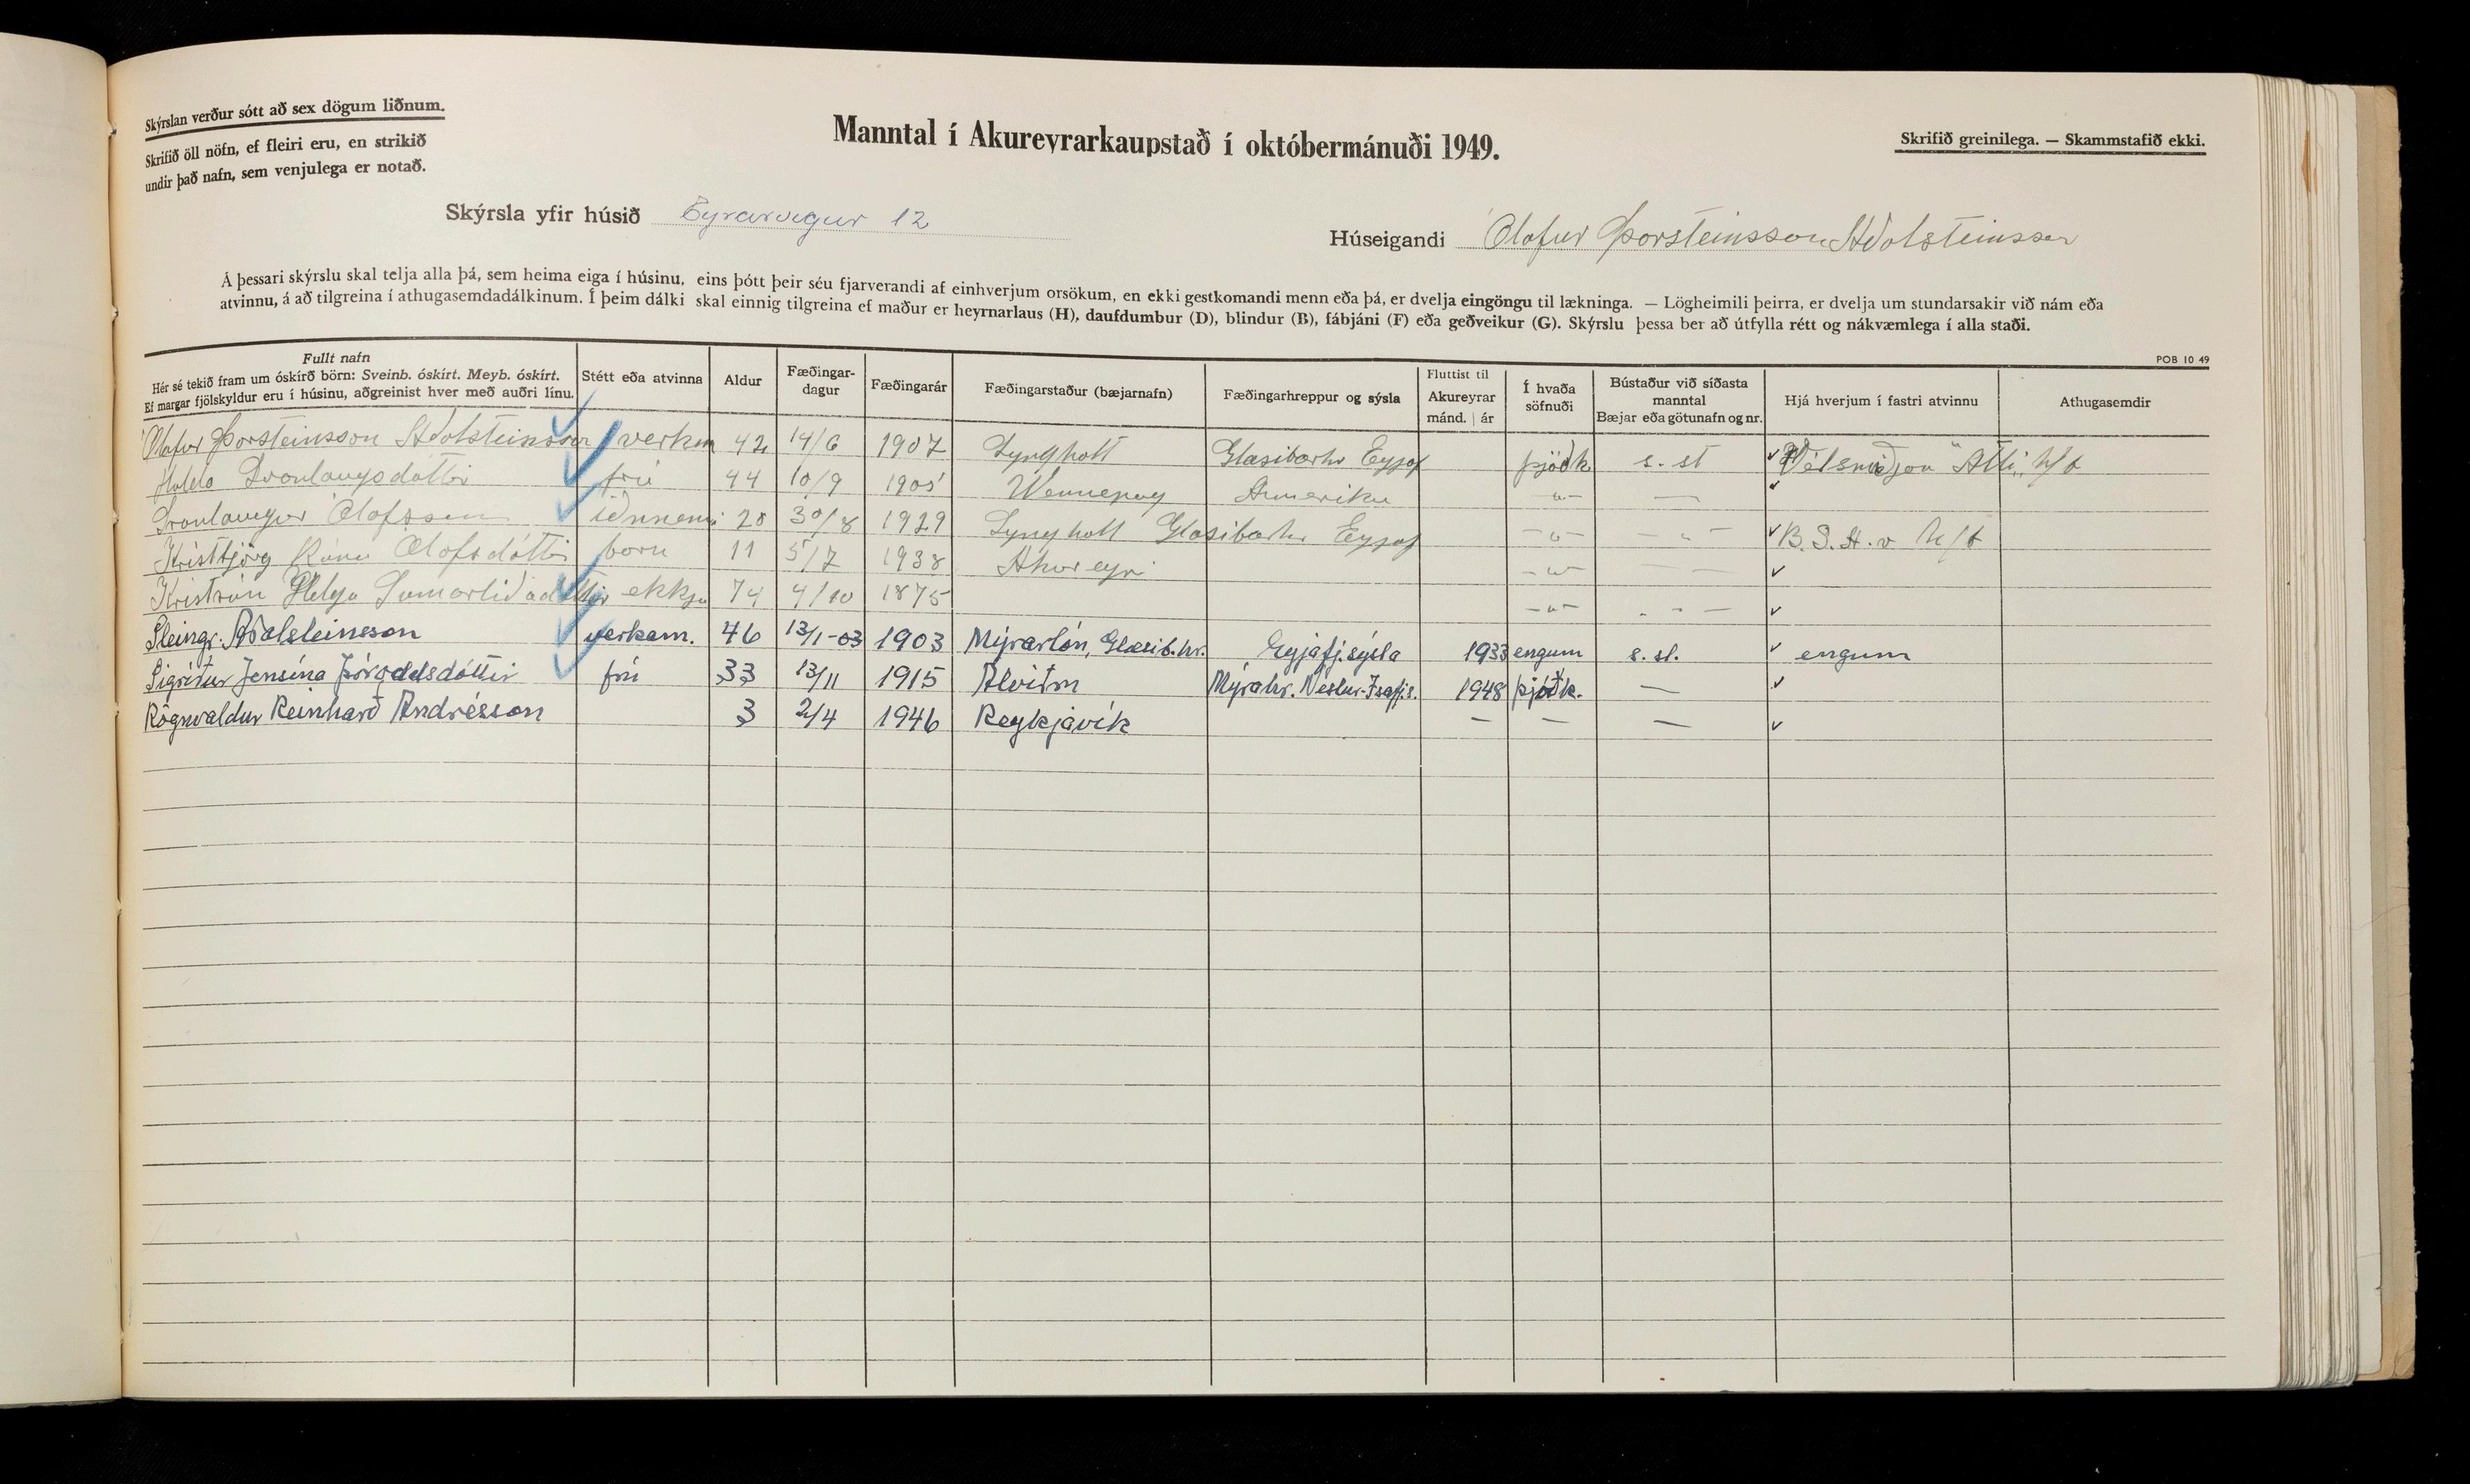 Skýrslan verður sótt að sex dögum liðnum.
Skrifið öll nöfn, ef fleiri eru, en strikið
undir það nafn, sem venjulega er notað.
Manntal í Akureyrarkaupstað í októbermánuði 1949.
Skrifið greinilega. — Skammstafið ekki.
Skýrsla yfir húsið Eyrarvegur 12
Húseigandi Ólafur Þorsteinsson Aðalsteinsson
Á þessari skýrslu skal telja alla þá, sem heima eiga í húsinu, eins þótt þeir séu fjarverandi af einhverjum orsökum, en ekki gestkomandi menn eða þá, er dvelja eingöngu til lækninga. — Lögheimili þeirra, er dvelja um stundarsakir við nám eða
atvinnu, á að tilgreina í athugasemdadálkinum. Í þeim dálki skal einnig tilgreina ef maður er heyrnarlaus (H), daufdumbur (D), blindur (B), fábjáni (F) eða geðveikur (G). Skýrslu þessa ber að útfylla rétt og nákvæmlega í alla staði.
POB 10 49
Fullt nafn
Hér sé tekið fram um óskírð börn: Sveinb. óskírt. Meyb. óskírt.
Ef margar fjölskyldur eru í húsinu, aðgreinist hver með auðri línu.
Stétt eða atvinna
Aldur
Fæðingar-
dagur
Fæðingarár
Fæðingarstaður (bæjarnafn)
Fæðingarhreppur og sýsla
Fluttist til
Akureyrar
mánd. | ár
Í hvaða
söfnuði
Bústaður við síðasta
manntal
Bæjar eða götunafn og nr.
Hjá hverjum í fastri atvinnu
Athugasemdir
Ólafur Þorsteinsson Aðalsteinsson verkm 42 14/6 1907 Lyngholt Glæsibæhr Eyjaf þjóðk s. st Vélsmiðjan "Atli" h/f
Dronlaugsdóttir frú 44 10/9 1905 Wennepeg Ameriku -"- —
Ólafsson iðnnemi 20 30/8 1929 Lyngholt Glæsibæhr Eyjaf -"- - " - B.S.A.v h/f
Kristbjörg Rúna Ólafsdóttir barn 11 5/7 1938 Akureyri -"- — —
Kristrún Helga Sumarliðadóttir ekkja 74 4/10 1875 -"- - - —
Steingr. Aðalsteinsson verkam. 46 13/1-03 1903 Mýrarlón, Glæsib.hr. Eyjafj.sýsla 1933 engum s. st. engum
Sigríður Jensína Þóroddsdóttir frú 33 13/11 1915 Alviðru Mýrahr. Vestur-Ísafj.s. 1948 þjóðk. —
Rögnvaldur Reinharð Andrésson 3 2/4 1946 Reykjavík — — —